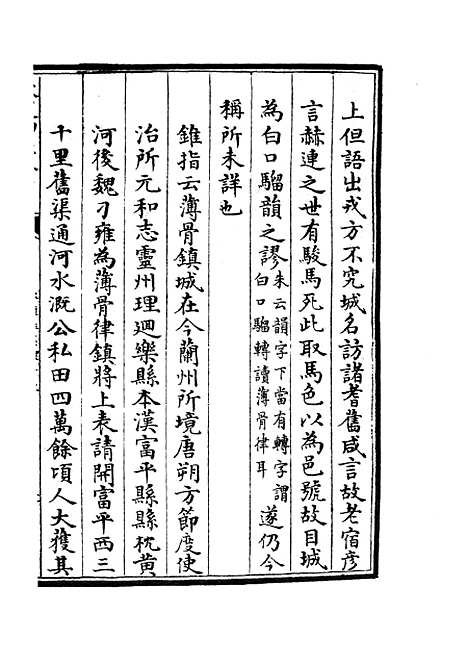 上但語出戎方不究城名訪諸耆舊咸言故老宿彦
言赫連之世有駿馬死此取馬色以為邑號故目城
為白口騮韻之謬朱云韻字下當有轉字謂白口騮轉讀薄骨律耳遂仍今
稱所未詳也
錐指云薄骨鎮城在今蘭州所境唐朔方節度使
治所元和志靈州理迴樂縣本漢富平縣縣枕黄
河後魏刁雍為薄骨律鎮將上表請開富平西三
十里舊渠通河水溉公私田四萬餘頃人大獲其